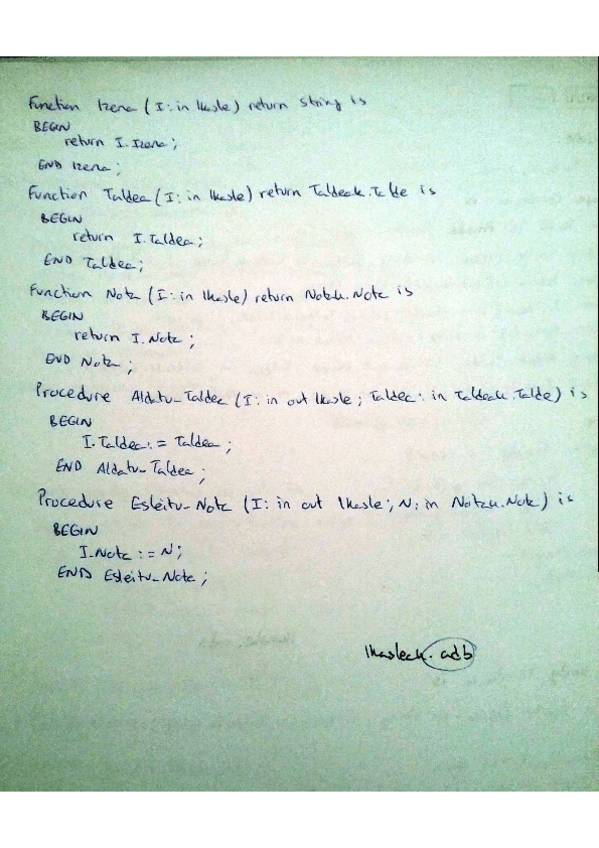 Function Izena (I: in Ikasle) return String is
BEGIN
return I.Izena;
END Izena;
Function Taldea (I: in Ikasle) return Taldeak.Talde is
BEGIN
return I.Taldea;
END Taldea;
Function Nota (I: in Ikasle) return Notak.Nota is
BEGIN
return I.Nota;
END Nota;
Procedure Aldatu_Taldea (I: in out Ikasle; Taldea: in Taldeak.Talde) is
BEGIN
I.Taldea:= Taldea;
END Aldatu_Taldea;
Procedure Esleitu_Nota (I: in out Ikasle; N: in Notak.Nota) is
BEGIN
I.Nota := N;
END Esleitu_Nota;
Ikasleak.adb